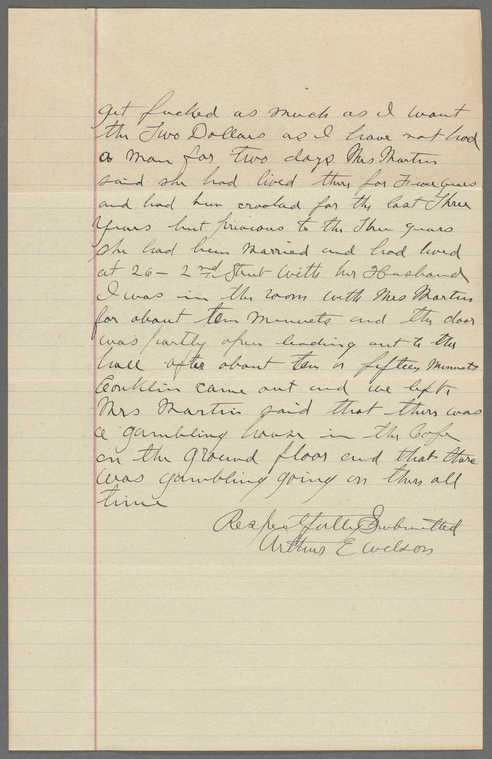 get fucked as much as I want
the Two Dollars as I have not had
a man for two days Mrs Martin
said she had lived there for Five years
and had been crooked for the last Three
years but previous to the Three years
she had been Married and had lived
at 26 - 2nd Street with her Husband
I was in the room with Mrs Martin
for about ten Minuets and the door
was partly open leading out to the
hall after about ten or fifteen Minuets
Conklin came out and we left.
Mrs Martin said that there was
a gambling house in the Cafe
on the ground floor and that there
was gambling going on there all
time
Respectfully Submitted
Arthur E Wilson